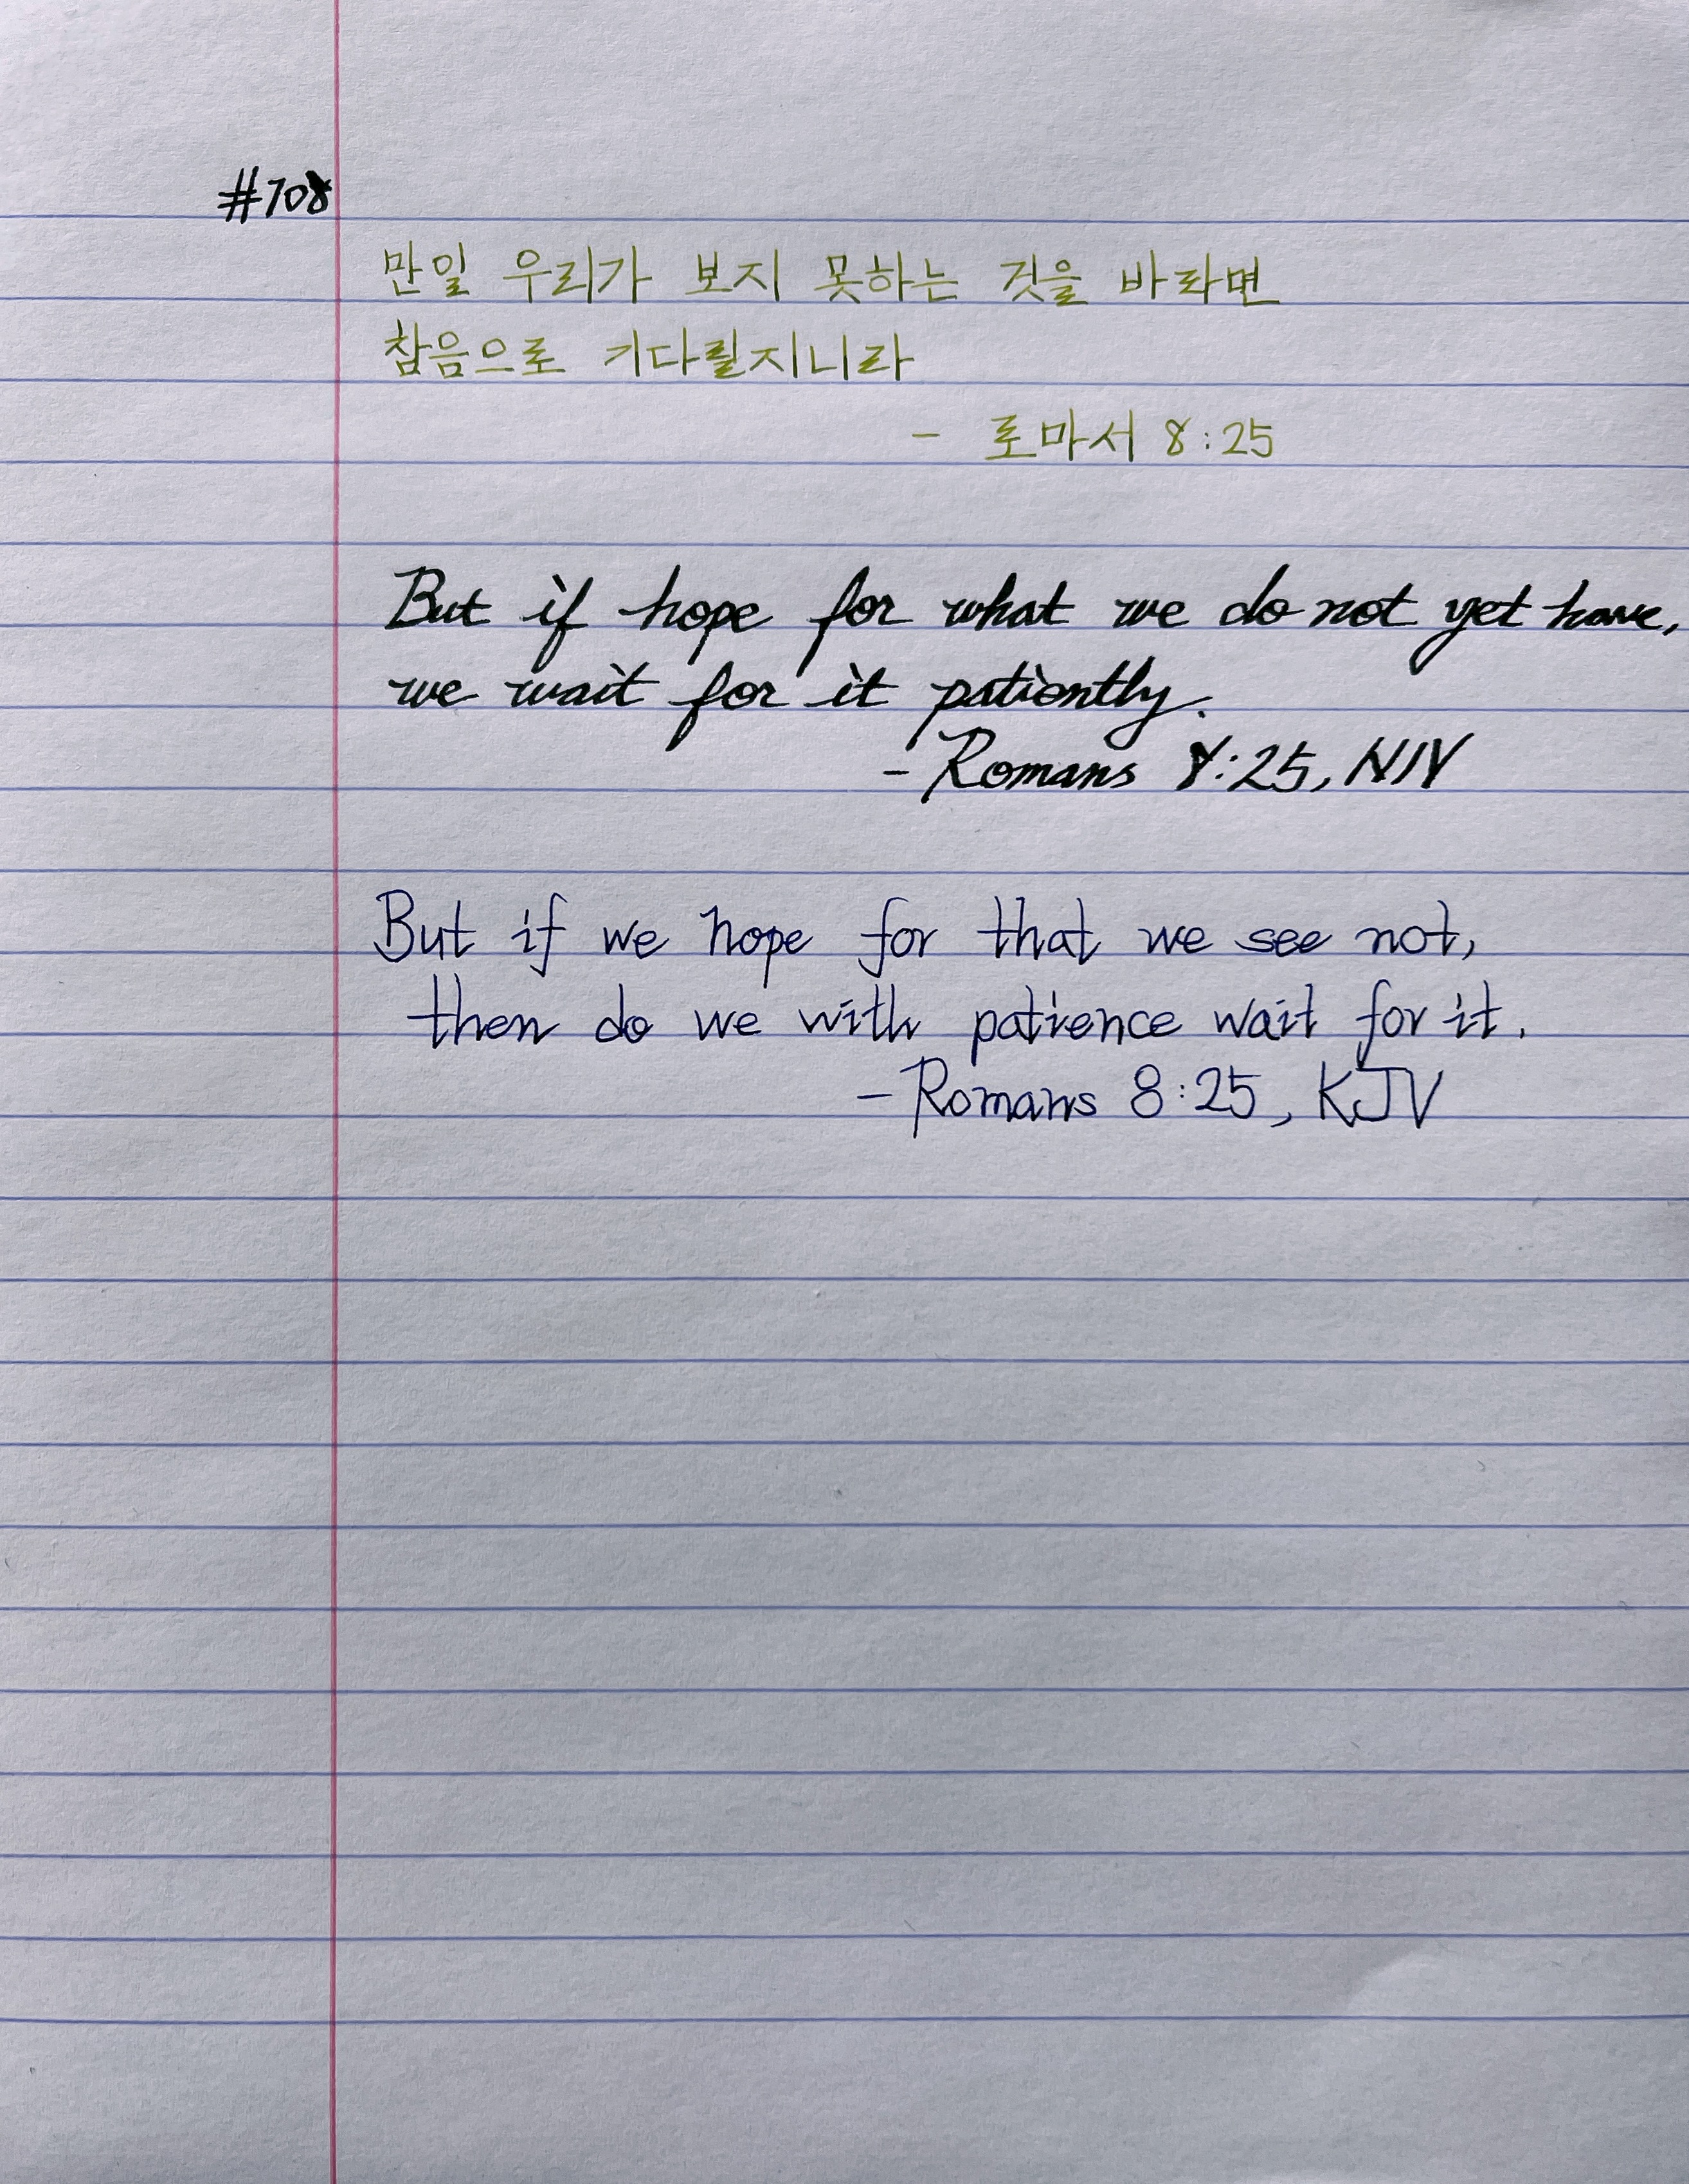 #708
만일 우리가 보지 못하는 것을 바라면
참음으로 기다릴지니라
- 로마서 8:25
But if hope for what we do not yet have,
we wait for it patiently.
- Romans 8:25, NIV
But if we hope for that we see not,
then do we with patience wait for it.
- Romans 8:25, KJV